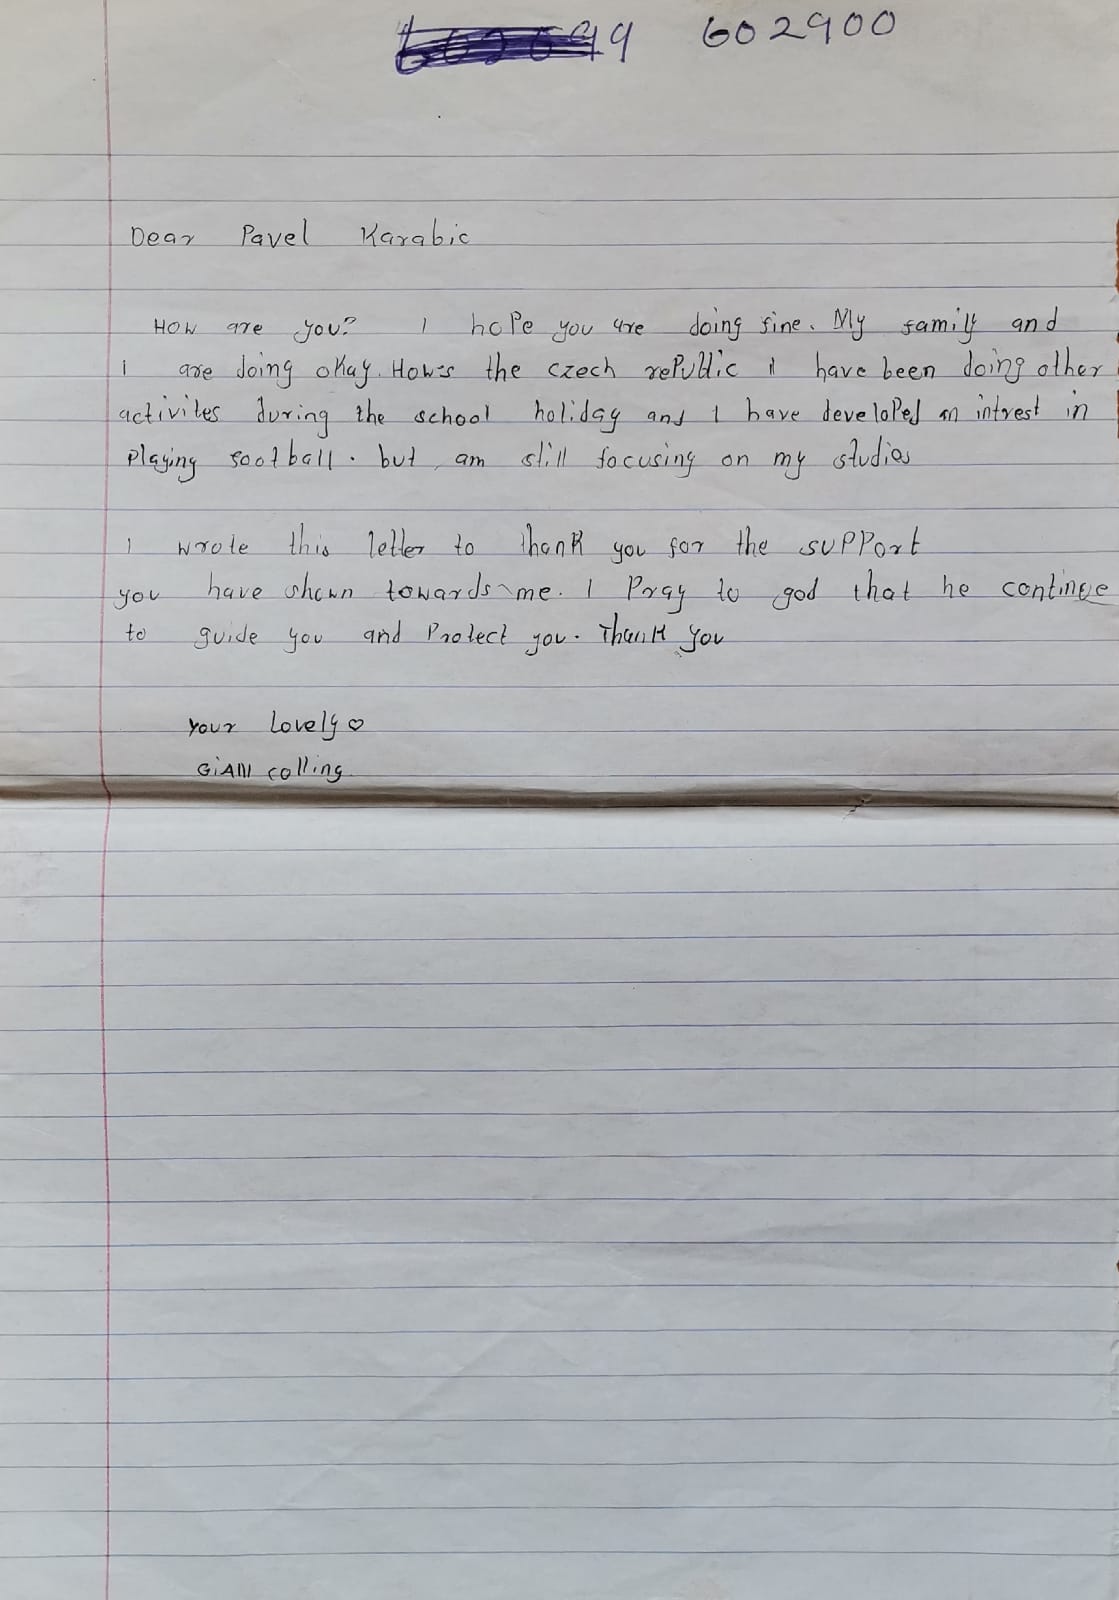 602900
Dear Pavel Karabic
How are you? I hope you are doing fine. My family and
I are doing okay. How's the czech republic I have been doing other
activites during the school holiday and I have developed an intrest in
playing football. but am still focusing on my studies
I wrote this letter to thank you for the support
you have shown towards me. I Pray to god that he continue
to guide you and Protect you. Thank you
your lovely ♡
GiAN colling